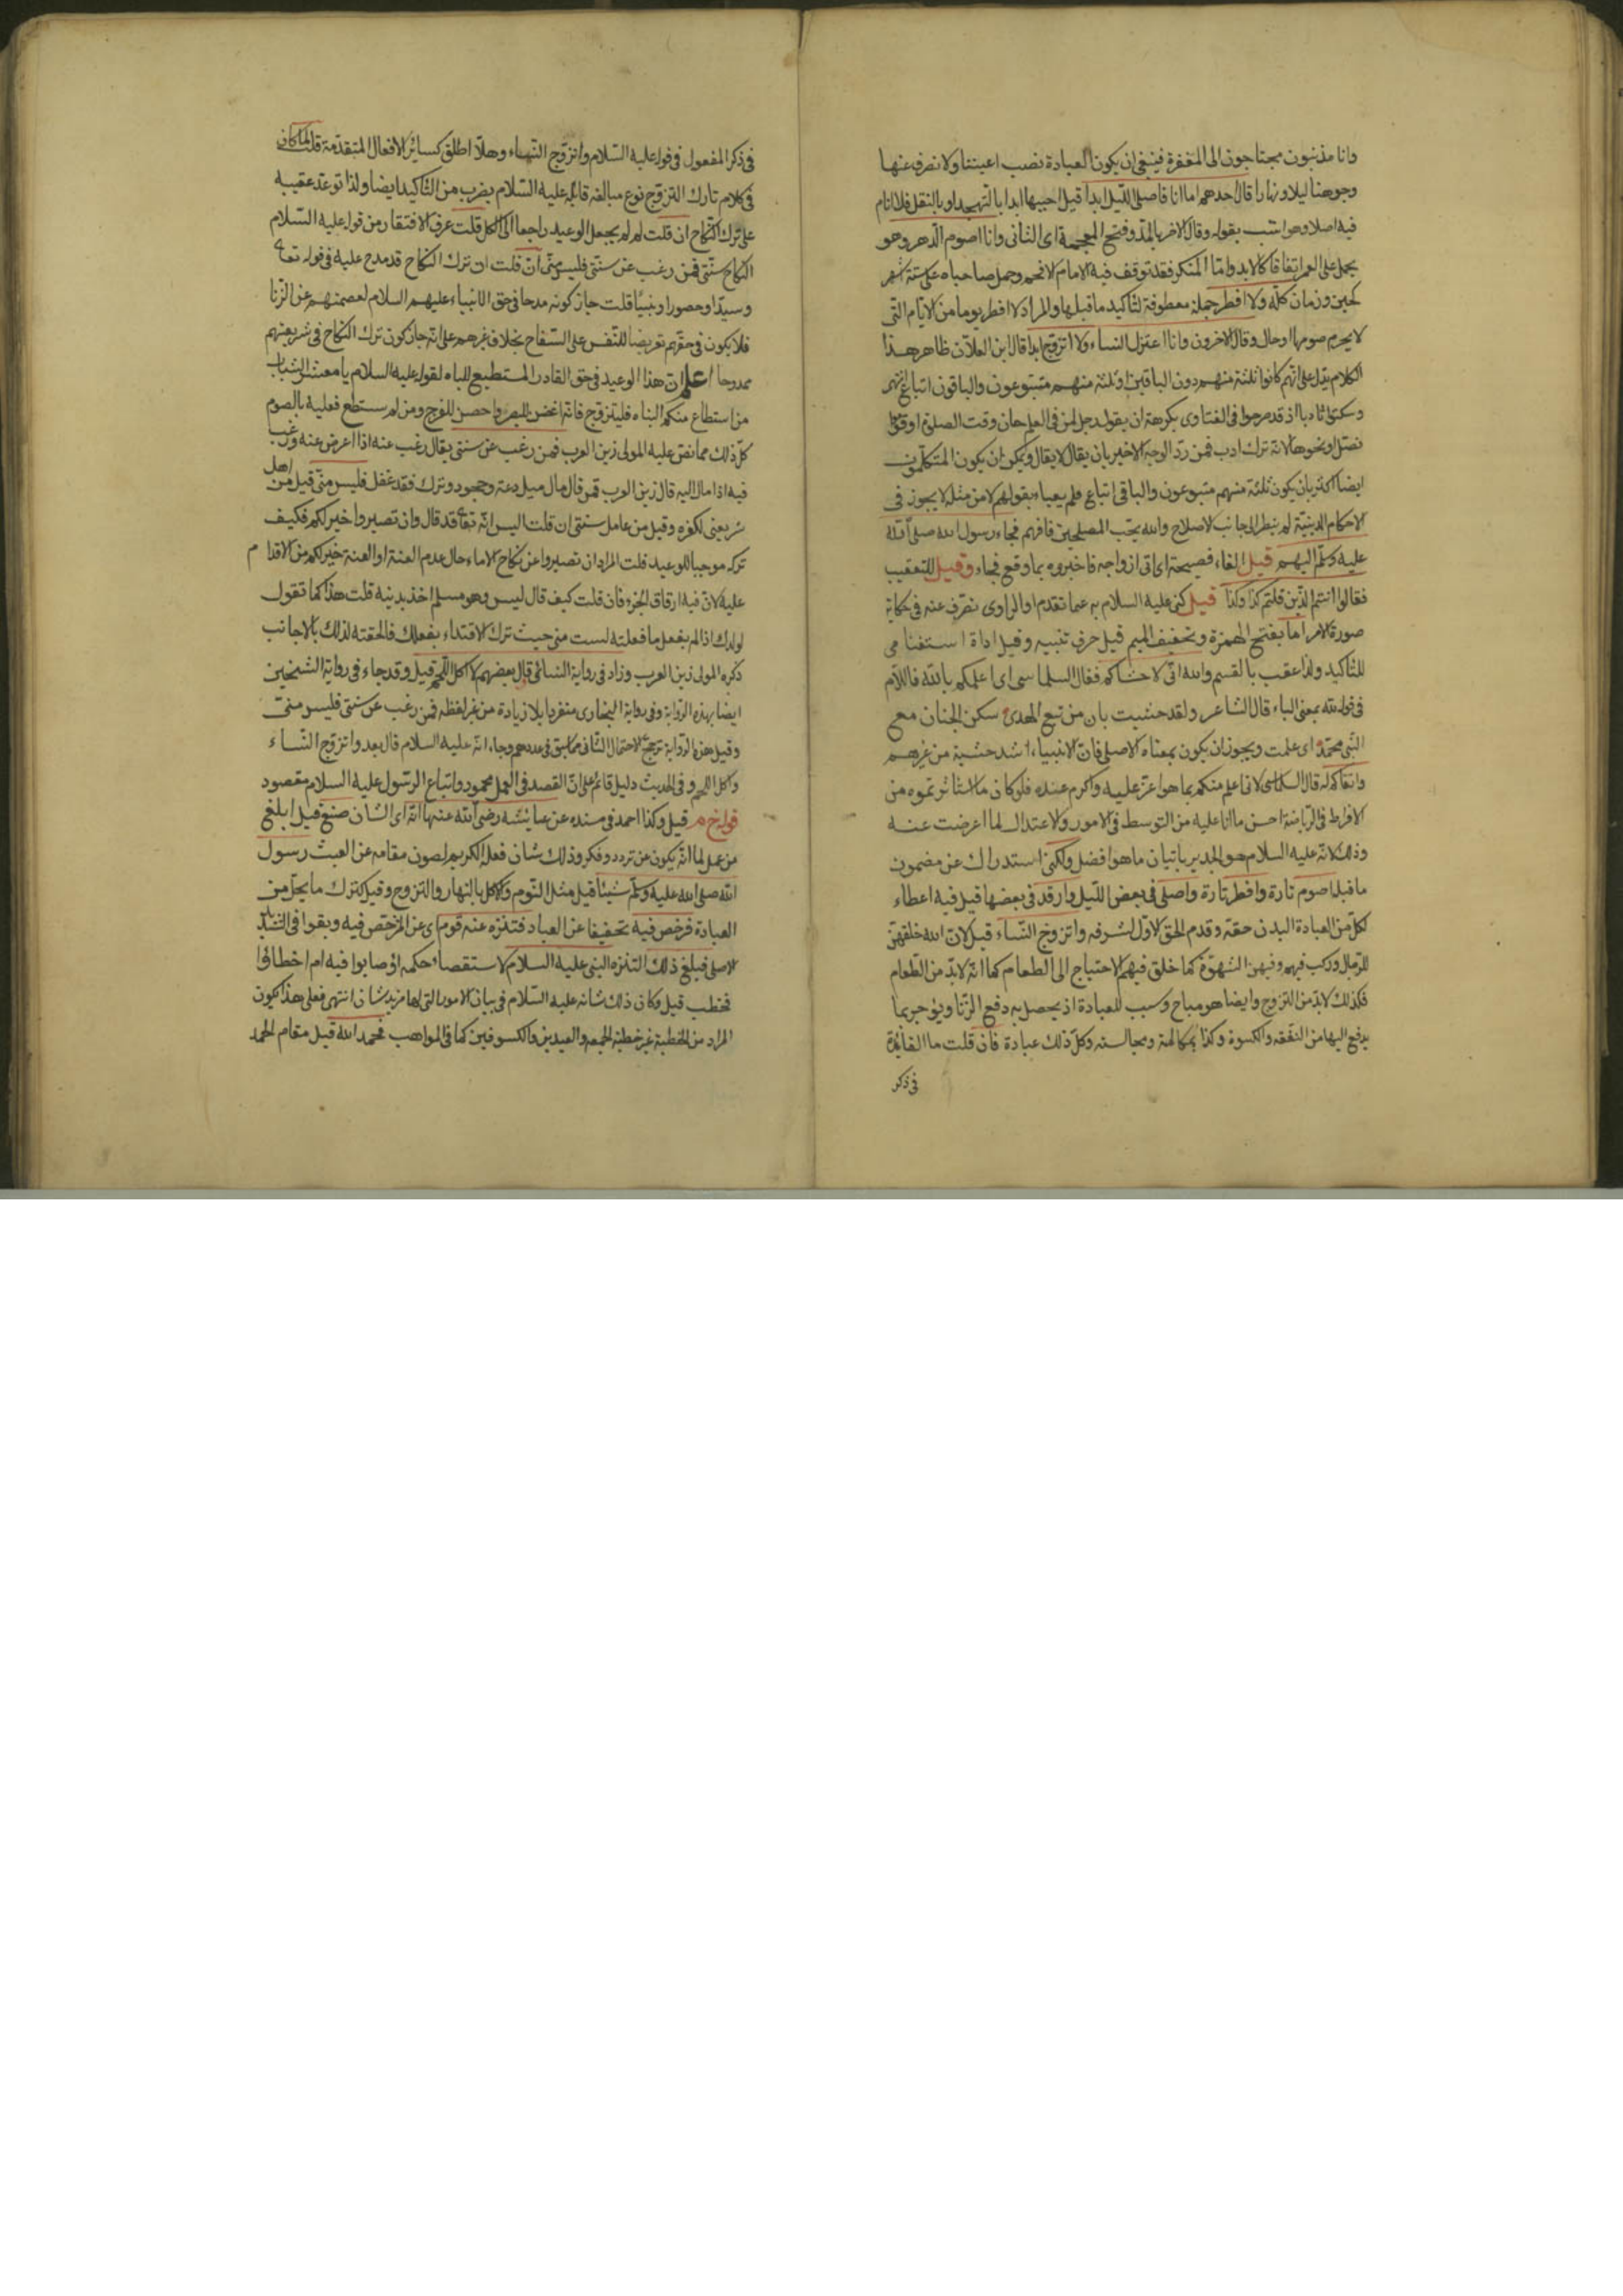 وانا مذنبون محتاجون الى المغفرة فينبغى ان يكون العبادة نصب اعيننا ولا نصرف عنها
وجوهنا ليلا ونهارا قال احدهم اما انا فاصلى الليل ابدا قيل احييها ابدا بالتهجد او بالنفل فلا انام
فيه اصلا وهو انسب بقوله وقال الاخر بالمد وفتح المعجمة اى الثانى وانا اصوم الدهر وهو
يحمل على العمر اتفاقا كالابد واما المنكر فقد توقف فيه الامام الافخم وحمل صاحباه على ستة اشهر
كحين وزمان كله ولا افطر جملة معطوفة لتاكيد ما قبلها والمراد لا افطر يوما من الايام التى
لا يحرم صومها وقال الاخرون وانا اعتزل النساء ولا اتزوج ابدا قال ابن العلان ظاهر هذا
الكلام يدل على انهم كانوا ثلثة منهم دون الباقين او ثلثة منهم متبوعون والباقون اتباع لهم
اذ قد صرحوا فى الفتاوى بكرهة ان يقول رجل لمن فى العلم حان وقت الصلوة او قوموا
نصل ونحوها لانه ترك ادب فمن رد الوجه الاخير بان يقال لا يقال ويمكن ان يكون المتكلمون
ايضا اكثر بان يكون ثلثة منهم متبوعون والباقى اتباع فلم يعباء بقولهم لا من مثله لا يجوز فى
الاحكام الدينية لم ينظر الى جانب الاصلاح والله يحب المصلحين فافهم فجاء رسول الله صلى الله
عليه وسلم اليهم قيل الفاء فصيحة اى اتى ازواجه فاخبروه بما وقع فجاء وقيل للتعقيب
فقال اانتم الذين قلتم كذا وكذا قيل كنى عليه السلام به عما تقدم او الراوى تصرف عنه فى حكاية
صورة الامر اما بفتح الهمزة وتخفيف الميم قيل حرف تنبيه وقيل اداة استفتاح هى
للتاكيد ولذا عقب بالقسم والله انى لاخشاكم فقال السلماسى اى اعلمكم بالله فاللام
فى قوله لله بمعنى الباء قال الشاعر ولقد خشيت بان من تبع الهدى سكن الجنان مع
النبى محمد اى علمت ويجوز ان يكون بمعناه الاصلى فان الانبياء اشد خشية من غيرهم
واتقاكم له قال السلماسى لانى اعلم منكم بما هو اعز عليه واكرم عنده فلو كان ما استاثرتموه من
الافراط فى الرياضة احسن مما انا عليه من التوسط فى الامور والاعتدال لما اعرضت عنه
وذلك لانه عليه السلام هو الجدير باتيان ما هو افضل ولكنى استدراك عن مضمون
ما قبله اصوم تارة وافطر تارة واصلى فى بعض الليل وارقد فى بعضها قيل فيه اعطاء
لكل من العبادة البدن حقه وقدم الحق الاول لشرفه واتزوج النساء قيل لان الله خلقهن
للرجال وركب فيهم وفيهن الشهوة كما خلق فيهم الاحتياج الى الطعام كما انه لا بد من الطعام
فكذلك لا بد من التزوج وايضا هو مباح وسبب للعبادة اذ يحصل به دفع الزنا ويؤجر بما
يدفع اليها من النفقة والكسوة وكذا بمكالمة ومجالسته وكل ذلك عبادة فان قلت ما الفائدة
فى ذكر
فى ذكر المفعول فى قوله عليه السلام واتزوج النساء وهلا اطلق كسائر الافعال المتقدمة قلت لما كان
فى كلام تارك التزوج نوع مبالغه قابله عليه السلام بضرب من التاكيد ايضا ولذا توعد عقيبه
على ترك النكاح ان قلت لم لم يجعل الوعيد راجعا الى الكل قلت عرف الافتقار من قوله عليه السلام
النكاح سنتى فمن رغب عن سنتى فليس منى ان قلت ان ترك النكاح قد مدح عليه فى قوله تعالى
وسيدا وحصورا ونبيا قلت جاز كونه مدحا فى حق الانبياء عليهم السلام لعصمتهم عن الزنا
فلا يكون فى حقهم تعريضا للنفس على السفاح بخلاف غيرهم على انه جاز كون ترك النكاح فى شريعتهم
ممدوحا اعلم ان هذا الوعيد فى حق القادر المستطيع للباه لقوله عليه السلام يا معشر الشباب
من استطاع منكم الباه فليتزوج فانه اغض للبصر واحصن للفرج ومن لم يستطع فعليه بالصوم
كل ذلك مما نص عليه المولى زين العرب فمن رغب عن سنتى يقال رغب عنه اذا اعرض عنه ورغب
فيه اذا مال اليه قال زين العرب فمن قال مال ميل دعة وجحود وترك فقد غفل فليس منى قيل من اهل
شرعى لكفره وقيل من عامل سنتى ان قلت اليس انه تعالى قد قال وان تصبروا خير لكم فكيف
تركه موجبا للوعيد قلت المراد ان تصبروا عن نكاح الاماء حال عدم العنة او العنة خير لكم من الاقدام
عليه لان فيه ارقاق الجزء فان قلت كيف قال ليس وهو مسلم اخذ بدينه قلت هذا كما تقول
لولدك اذا لم يفعل ما فعلته لست منى حيث ترك الاقتداء بفعلك فالحقته لذلك بالاجانب
ذكره المولى زين العرب وزاد فى رواية النسائى قال بعضهم لا اكل اللحم قيل وقد جاء فى رواية الشيخين
ايضا بهذه الرواية وفى رواية البخارى منفردا بلا زيادة من غير لفظه فمن رغب عن سنتى فليس منى
وقيل هذه الرواية ترجح الاحتمال الثانى مما سبق فى عددهم وجاء انه عليه السلام قال بعد واتزوج النساء
واكل اللحم وفى الحديث دليل قائم على ان القصد فى العمل محمود واتباع الرسول عليه السلام مقصود
قوله خ م قيل وكذا احمد فى مسنده عن عايشه رضى الله عنها انه اى الشان صنع قيل ابلغ
من عمل لما انه يكون عن تردد وفكر وذلك شان فعل الكريم لصون مقامه عن العبث رسول
الله صلى الله عليه وسلم شيئا قيل مثل النوم والاكل بالنهار والتزوج وقيل كترك ما يحل من
العبادة فرخص فيه تخفيفا عن العباد فتنزه عنه قوم اى عن المرخص فيه وبقوا فى الشد
الاصلى فبلغ ذلك التنزه النبى عليه السلام لاستقصاء حكمه اوصابوا فيه ام اخطاؤا
فخطب قيل وكان ذلك شانه عليه السلام فى بيان الامور التى لها مزيد شان انتهى فعلى هذا يكون
المراد من الخطبة غير خطبة الجمعه والعيدين والكسوفين كما فى المواهب فحمد الله قيل مقام الحمد